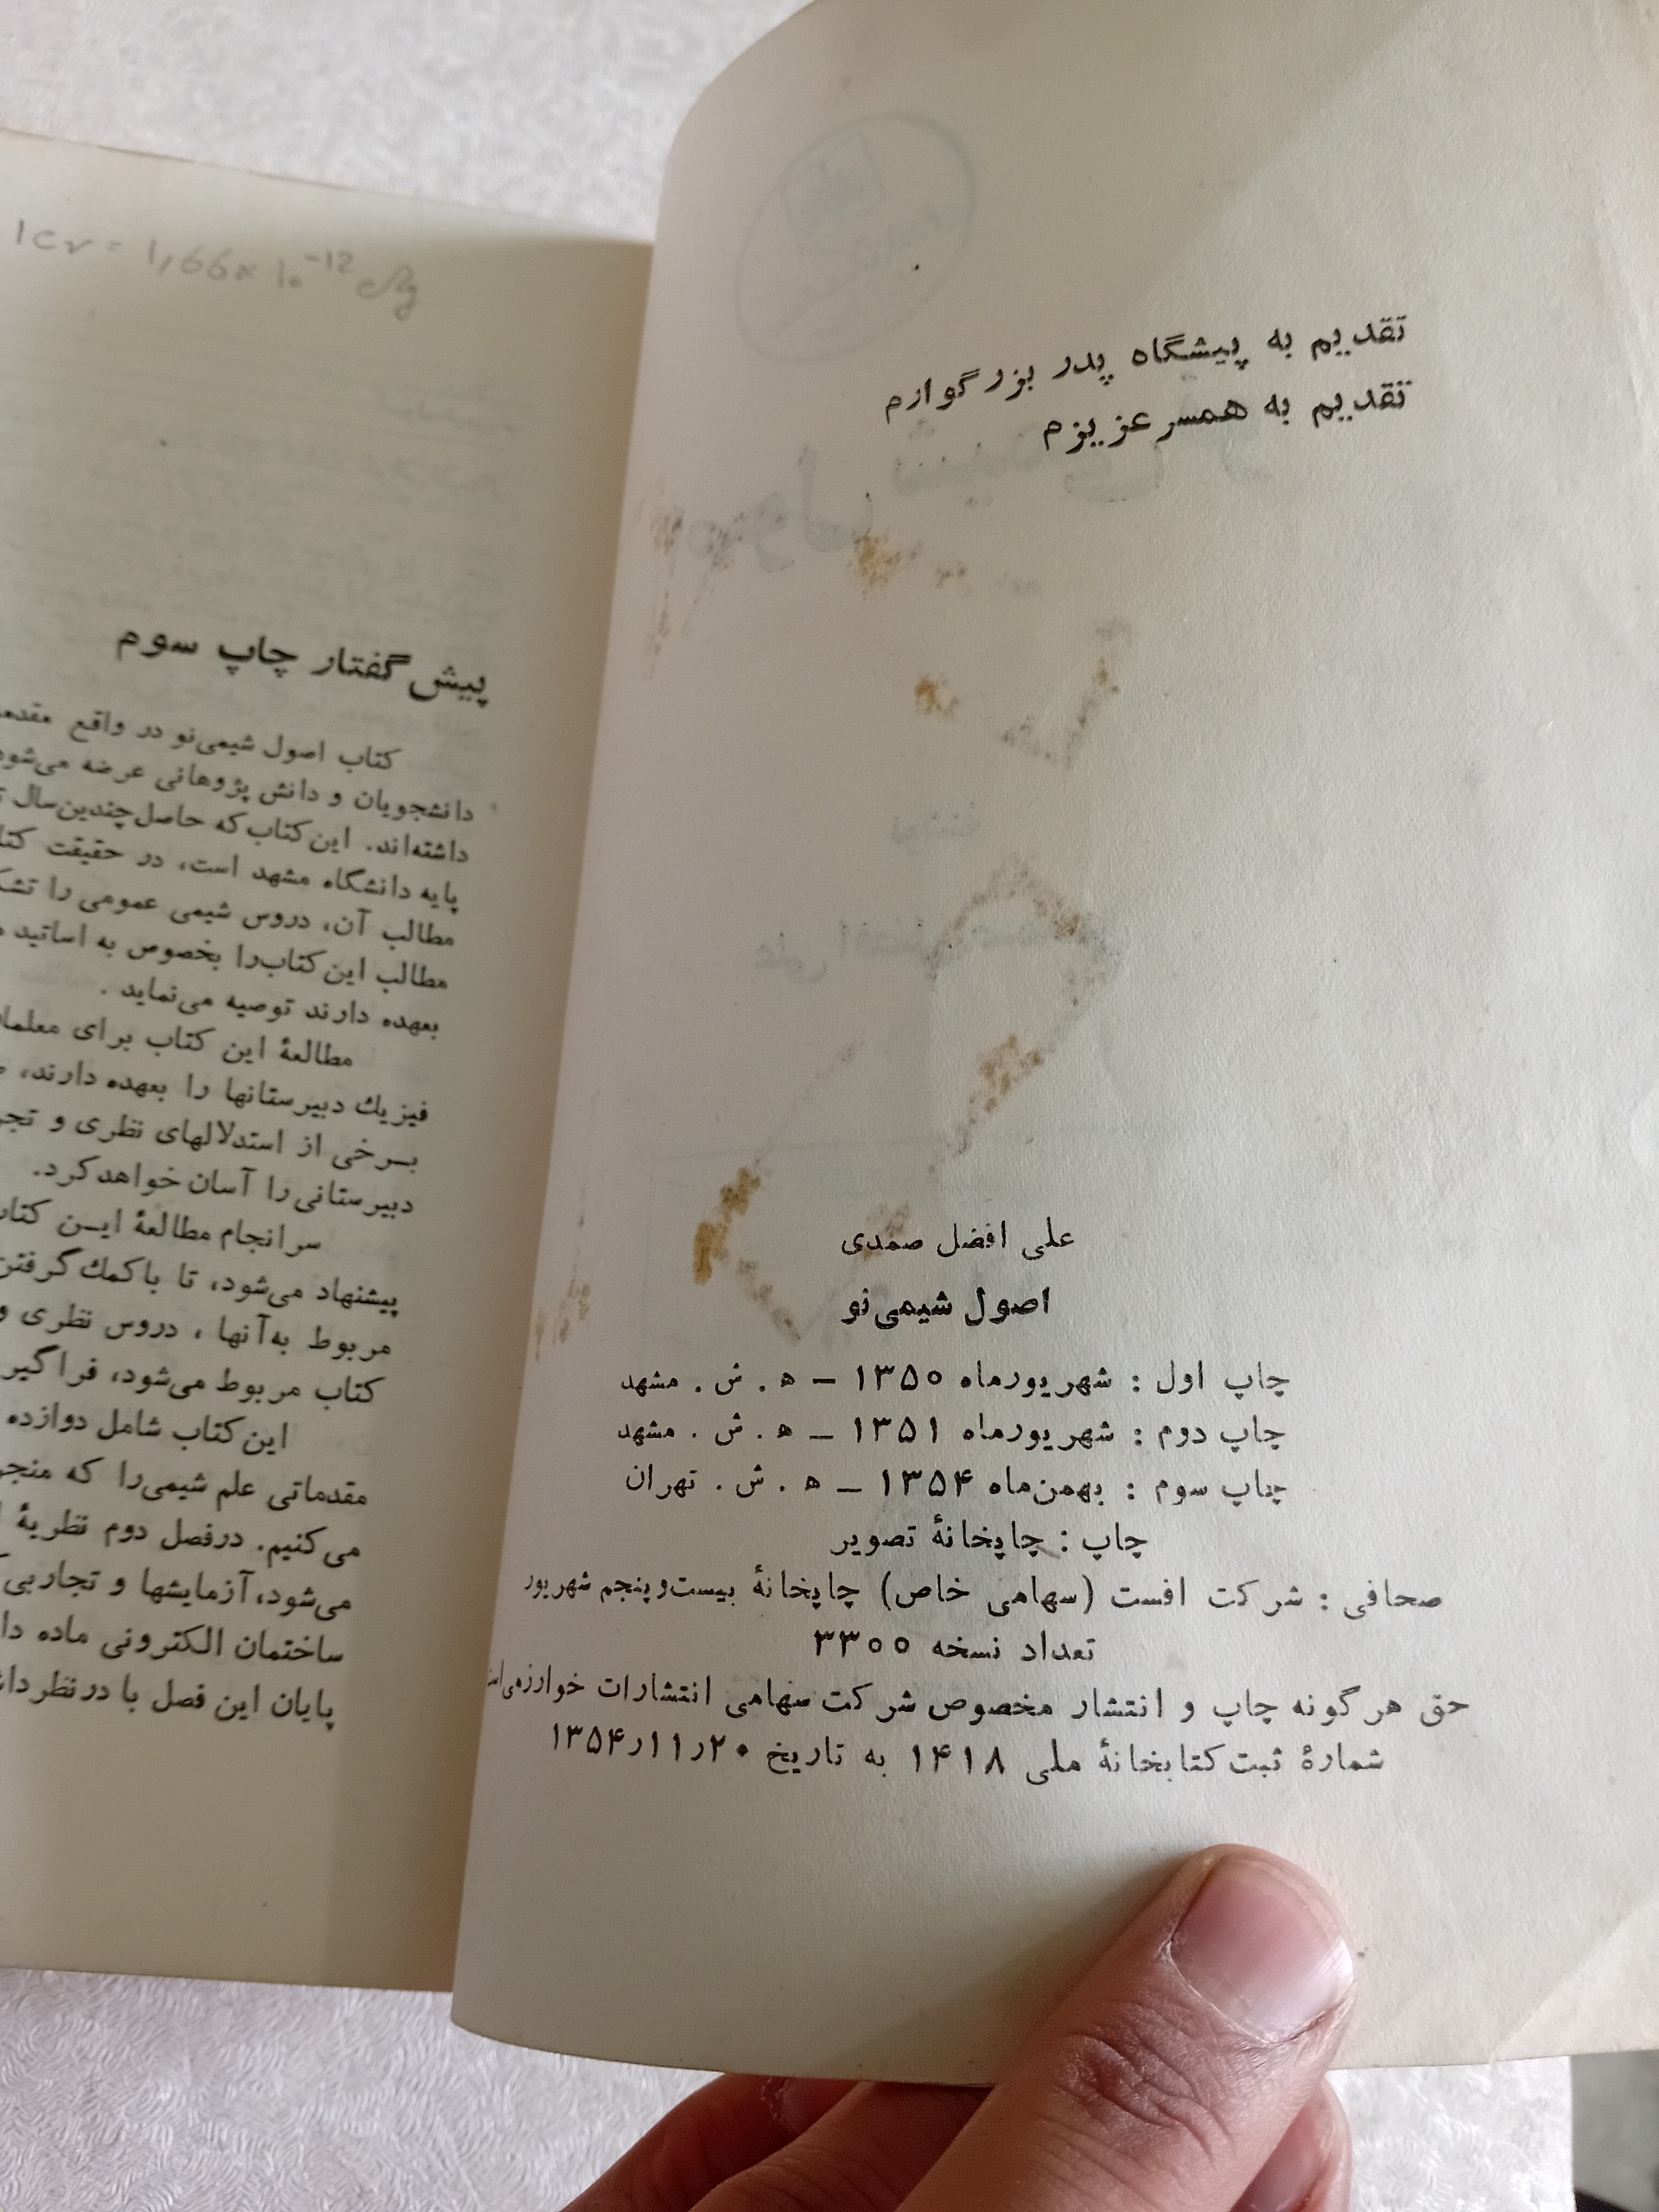 تقدیم به پیشگاه پدر بزرگوارم
تقدیم به همسر عزیزم
علی افضل صمدی
اصول شیمی‌نو
چاپ اول : شهریورماه ۱۳۵۰ – ه . ش . مشهد
چاپ دوم : شهریورماه ۱۳۵۱ – ه . ش . مشهد
چاپ سوم : بهمن‌ماه ۱۳۵۴ – ه . ش . تهران
چاپ : چاپخانهٔ تصویر
صحافی : شرکت افست (سهامی خاص) چاپخانهٔ بیست‌و‌پنجم شهریور
تعداد نسخه ۳۳۰۰
حق هرگونه چاپ و انتشار مخصوص شرکت سهامی انتشارات خوارزمی
شمارهٔ ثبت کتابخانهٔ ملی ۱۴۱۸ به تاریخ ۲۰ر۱۱ر۱۳۵۴
= 1,66 × 10⁻¹²
پیش‌گفتار چاپ سوم
کتاب اصول شیمی‌نو در واقع
دانشجویان و دانش پژوهانی عرضه می‌شود
داشته‌اند. این کتاب که حاصل چندین سال
پایه دانشگاه مشهد است، در حقیقت
مطالب آن، دروس شیمی عمومی را
مطالب این کتاب‌را بخصوص به اساتید
بعهده دارند توصیه می‌نماید .
مطالعهٔ این کتاب برای
فیزیك دبیرستانها را بعهده دارند،
برخی از استدلالهای نظری و
دبیرستانی را آسان خواهد کرد.
سرانجام مطالعهٔ ایـن
پیشنهاد می‌شود، تا با کمك گرفتن
مربوط به‌آنها ، دروس نظری و
کتاب مربوط می‌شود، فرا
این کتاب شامل دوازده
مقدماتی علم شیمی‌را که
می‌کنیم. درفصل دوم نظریهٔ
می‌شود، آزمایشها و تجاربی
ساختمان الکترونی ماده
پایان این فصل با درنظر